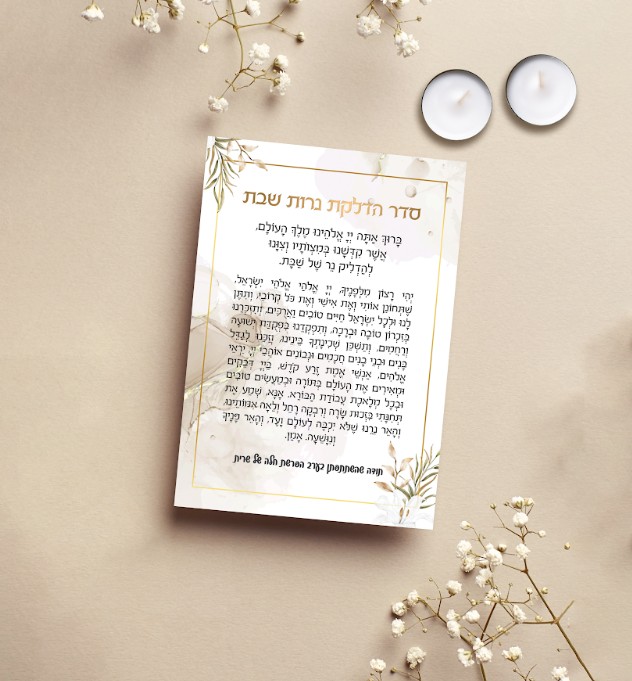 סדר הדלקת נרות שבת
בָּרוּךְ אַתָּה יְיָ אֱלֹהֵינוּ מֶלֶךְ הָעוֹלָם,
אֲשֶׁר קִדְּשָׁנוּ בְּמִצְוֹתָיו וְצִוָּנוּ
לְהַדְלִיק נֵר שֶׁל שַׁבָּת.
יְהִי רָצוֹן מִלְּפָנֶיךָ, יְיָ אֱלֹהַי אֱלֹהֵי יִשְׂרָאֵל,
שֶׁתְּחוֹנֵן אוֹתִי וְאֶת אִישִׁי וְאֶת כֹּל קְרוֹבַי, וְתִתֵּן
לָנוּ וּלְכָל יִשְׂרָאֵל חַיִּים טוֹבִים וַאֲרֻכִּים, וְתִזְכְּרֵנוּ
בְּזִכְרוֹן טוֹבָה וּבְרָכָה, וְתִפְקְדֵנוּ בִּפְקֻדַּת יְשׁוּעָה
וְרַחֲמִים, וְתַשְׁכֵּן שְׁכִינָתְךָ בֵּינֵינוּ, וְזַכֵּנוּ לְגַדֵּל
בָּנִים וּבְנֵי בָנִים חֲכָמִים וּנְבוֹנִים אוֹהֲבֵי יְיָ יִרְאֵי
אֱלֹהִים, אַנְשֵׁי אֱמֶת זֶרַע קֹדֶשׁ, בַּיְיָ דְּבֵקִים
וּמְאִירִים אֶת הָעוֹלָם בְּתוֹרָה וּבְמַעֲשִׂים טוֹבִים
וּבְכָל מְלֶאכֶת עֲבוֹדַת הַבּוֹרֵא. אָנָּא, שְׁמַע אֶת
תְּחִנָּתִי בִּזְכוּת שָׂרָה וְרִבְקָה רָחֵל וְלֵאָה אִמּוֹתֵינוּ,
וְהָאֵר נֵרֵנוּ שֶׁלֹּא יִכְבֶּה לְעוֹלָם וָעֶד, וְהָאֵר פָּנֶיךָ
וְנִוָּשֵׁעָה. אָמֵן.
תודה שהשתתפתן בערב הפרשת חלה של שרית